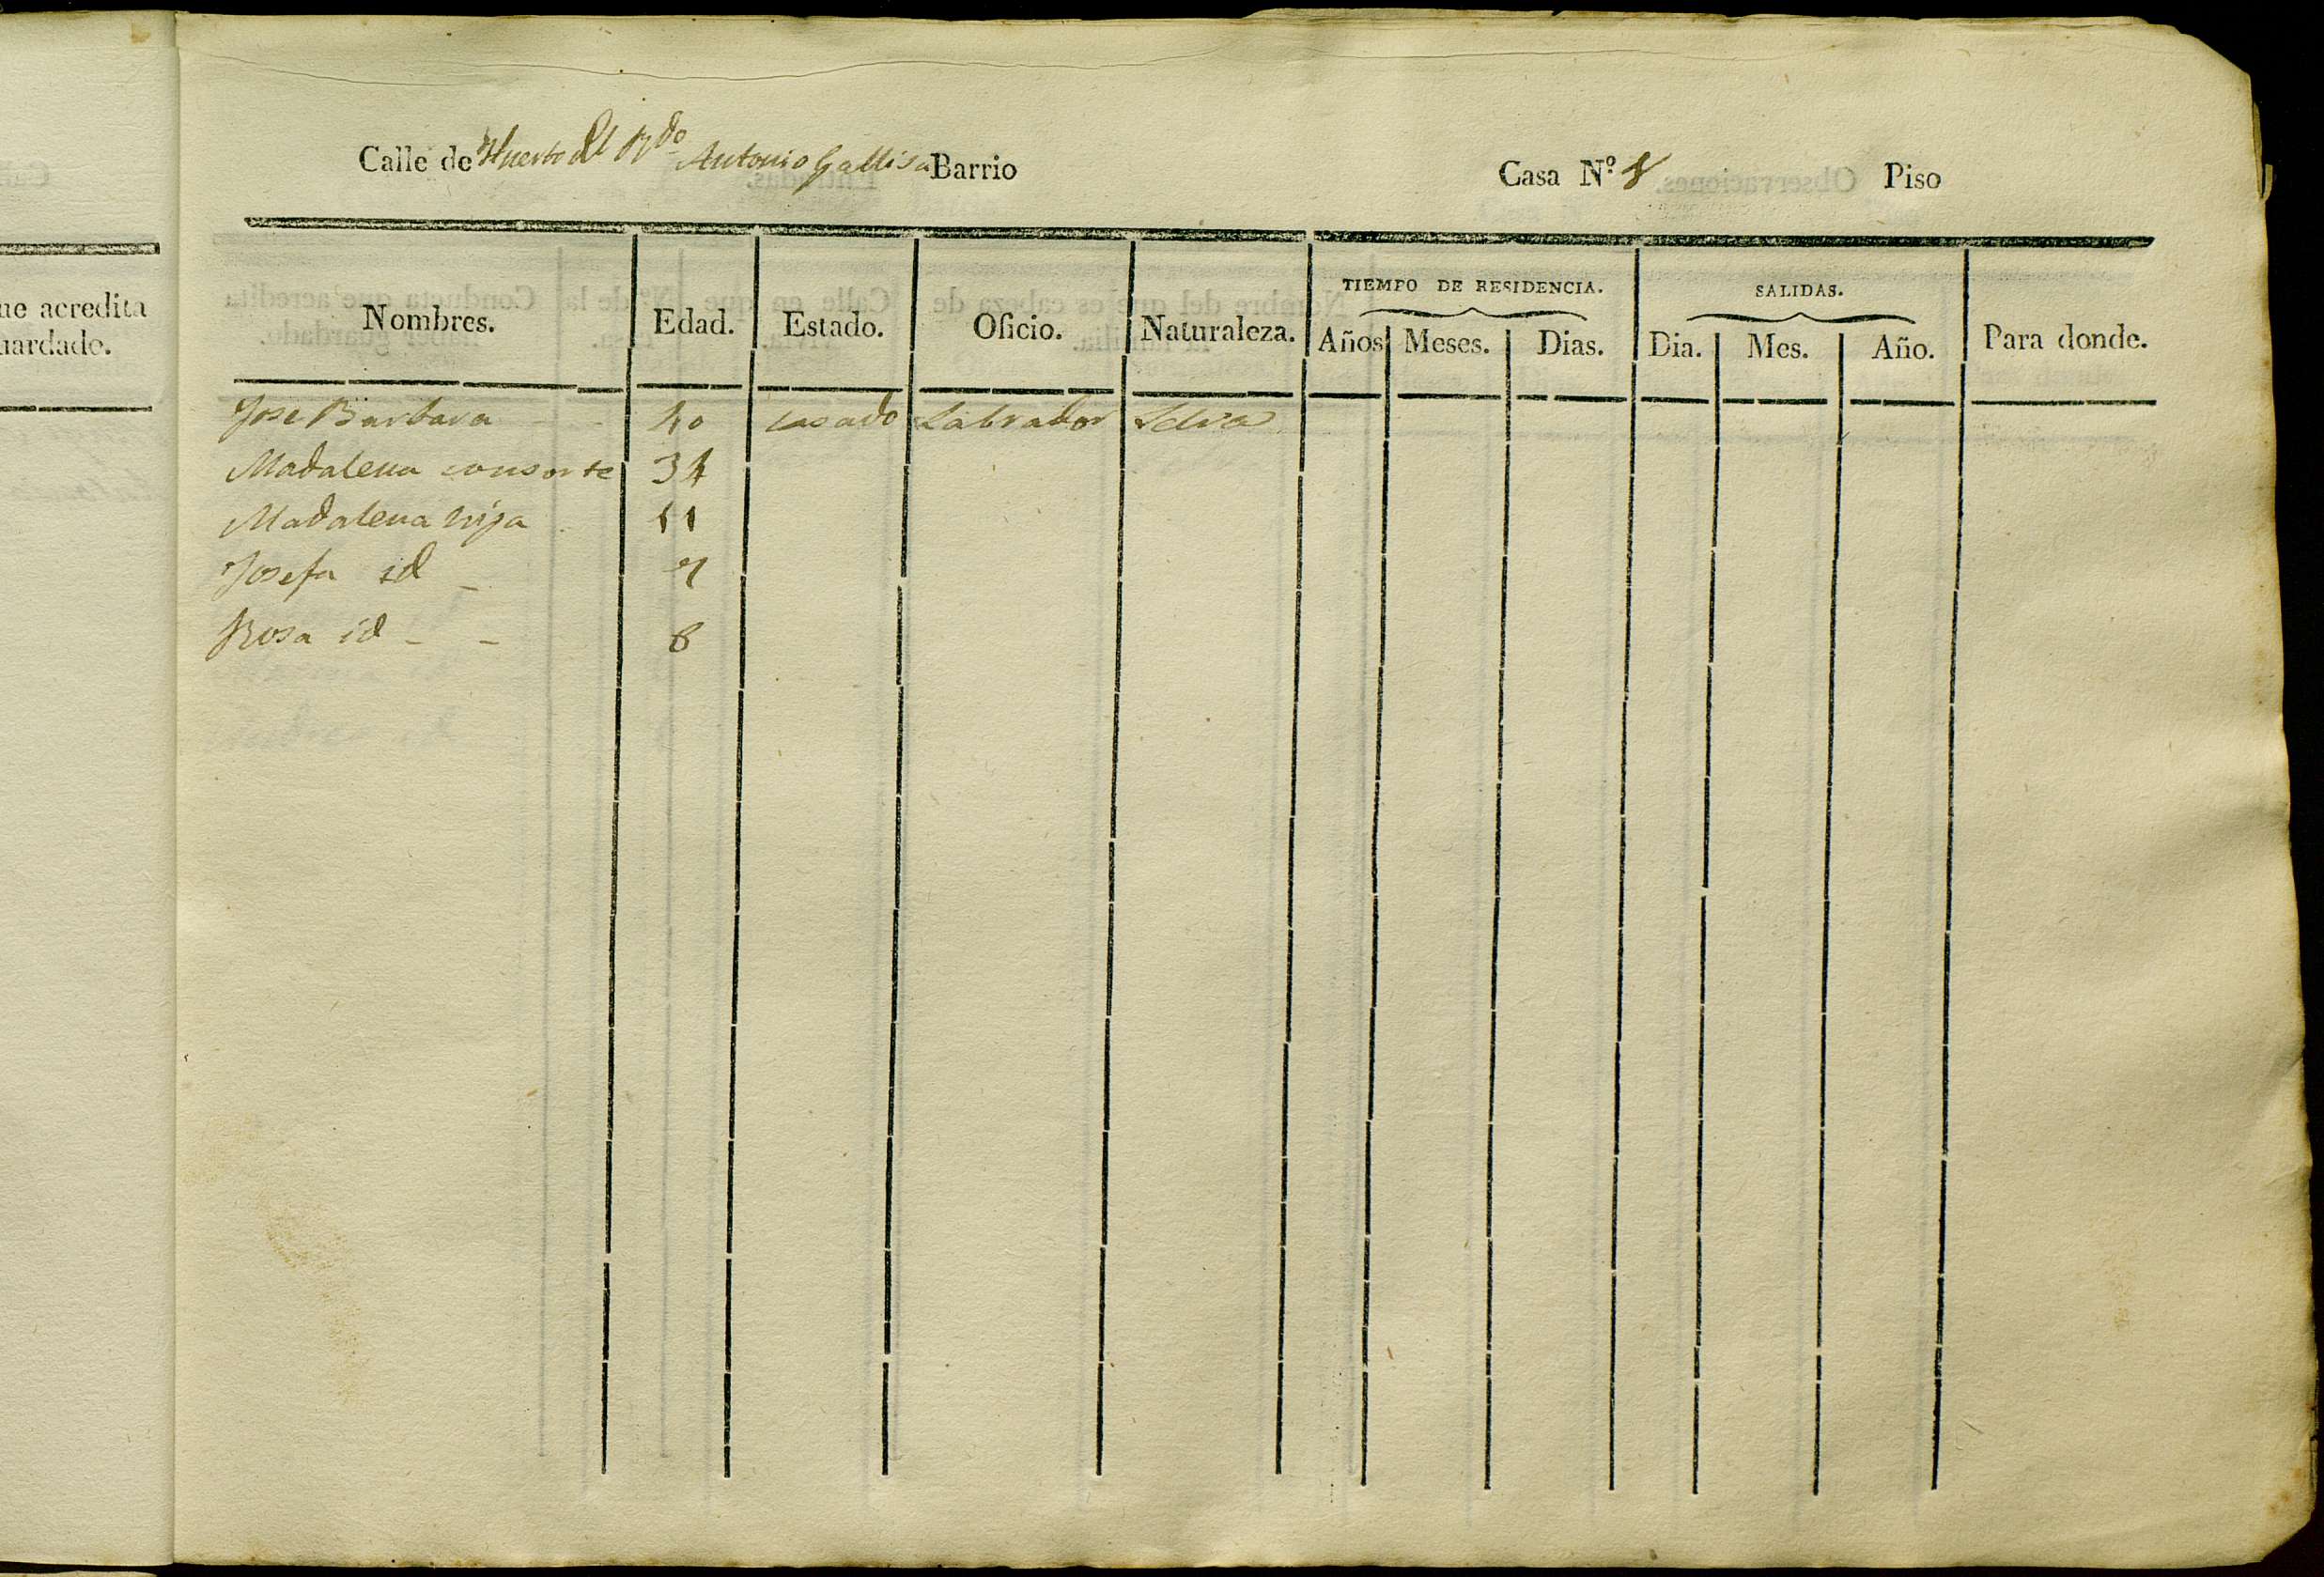 Calle de Huerto del Rdo Antonio Gallisa Barrio Casa N.º Piso
ue acredita
uardado.
TIEMPO DE RESIDENCIA. SALIDAS.
Nombres. Edad. Estado. Oficio. Naturaleza. Años Meses. Dias. Dia. Mes. Año. Para donde.
Jose Barbara - - 40 casado Labrador Selva
Madalena consorte 34
Madalena hija 11
Josefa id - 7
Rosa id - - 6